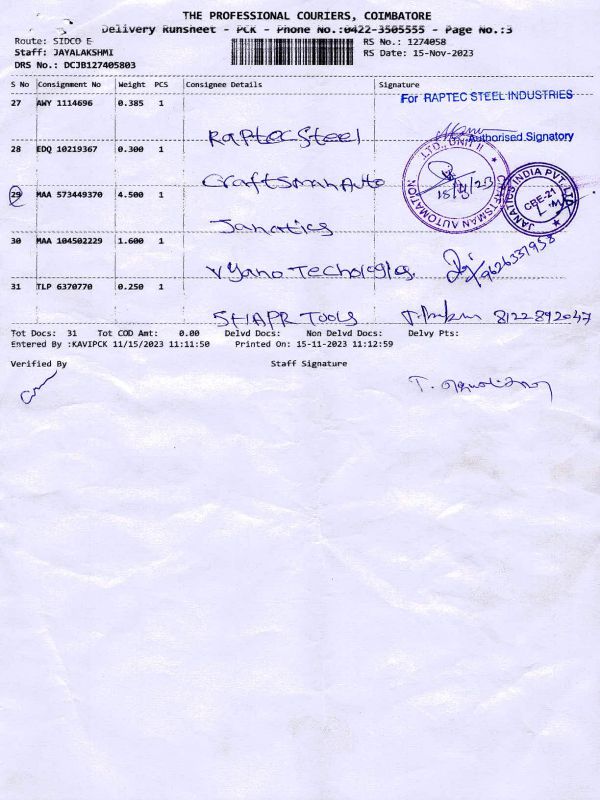 THE PROFESSIONAL COURIERS, COIMBATORE
Delivery Runsheet - PCK - Phone No.:0422-3505555 - Page No.:3
Route: SIDCO E
RS No.: 1274058
Staff: JAYALAKSHMI
RS Date: 15-Nov-2023
DRS No.: DCJB127405803
S No Consignment No Weight PCS Consignee Details Signature
27 AWY 1114696 0.385 1
For RAPTEC STEEL INDUSTRIES
Raptec Steel
Authorised Signatory
28 EDQ 10219367 0.300 1
Craftsman Auto
CRAFTSMAN AUTOMATION LTD., UNIT II
15/11/23
29 MAA 573449370 4.500 1
Janatics
JANATICS INDIA PVT. LTD.
CBE-21
30 MAA 104502229 1.600 1
Vyano Techologies
9626331958
31 TLP 6370770 0.250 1
SHAPR TOOLS
8122892047
Tot Docs: 31 Tot COD Amt: 0.00 Delvd Docs: Non Delvd Docs: Delvy Pts:
Entered By :KAVIPCK 11/15/2023 11:11:50 Printed On: 15-11-2023 11:12:59
Verified By Staff Signature